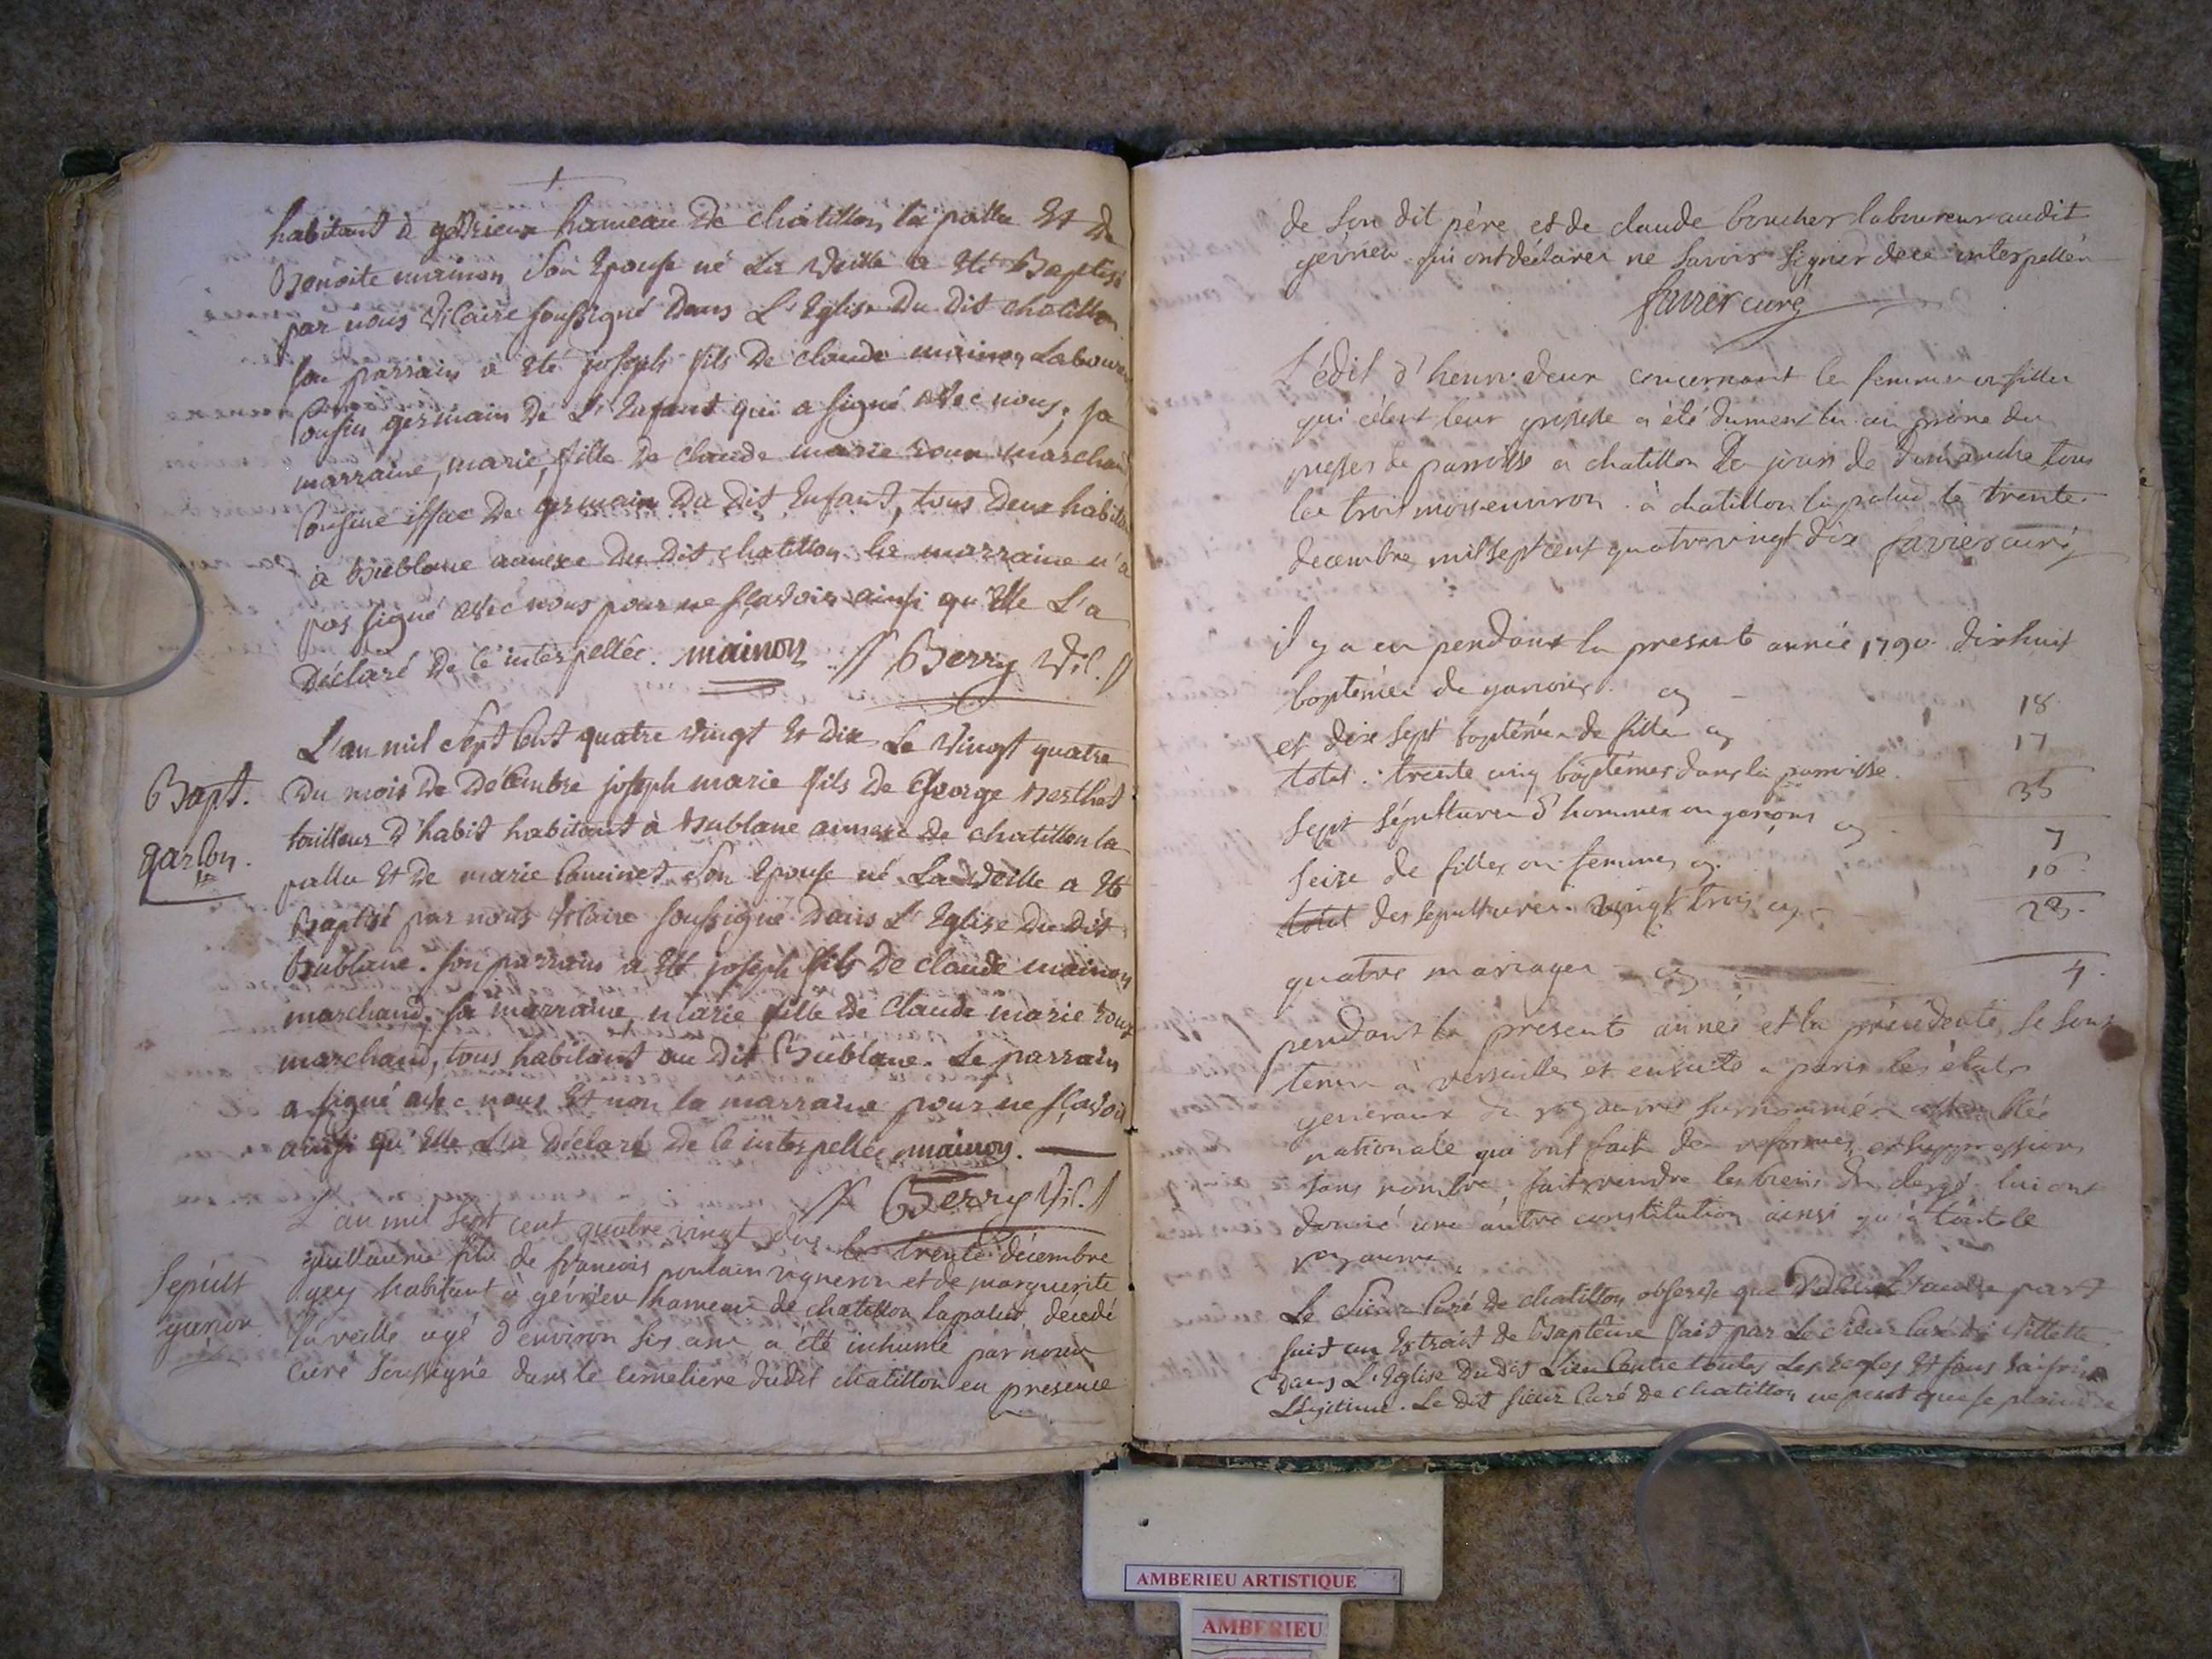 habitant à gévrieux hameau De chatillon la pallu Et De
Benoite mainon Son Epouse né La Veille a Eté Baptisé
par nous Vicaire soussigné Dans L'Eglise Du Dit chatillon
son parrain a Eté joseph fils De claude mainon Laboureur
Cousin germain De L'Enfant qui a signé avec nous, sa
marraine, marie, fille De claude marie roux marchand
Cousine issue De germain Du Dit Enfant, tous Deux habitants
à Bublane annexe Du Dit chatillon. La marraine n'a
pas signé avec nous pour ne sçavoir ainsi qu'Elle L'a
Déclaré De Ce interpellée. mainon // Berry Vic. //
L'an mil Sept Cent quatre Vingt Et Dix Le Vingt quatre
Bapt.
garçon.
Du mois De Décembre joseph marie fils De George Berthet
tailleur D'habit habitant à Bublane annexe De chatillon la
pallu Et De marie Son Epouse né La Veille a Eté
Baptisé par nous Vicaire soussigné Dans L'Eglise Du Dit
Bublane. son parrain a Eté joseph fils De claude mainon
marchand, sa marraine, marie fille De Claude marie roux
marchand, tous habitant au Dit Bublane. Le parrain
a signé avec nous Et non la marraine pour ne sçavoir
ainsi qu'Elle L'a Déclaré De Ce interpellée mainon.
// Berry Vic. //
L'an mil sept cent quatre vingt dix le trente décembre
Sepult
garçon
guillaume fils de françois poulain vigneron et de marguerite
gey habitant à gévrieu hameau de chatillon lapalud, decedé
la veille agé d'environ six ans a été inhumé par nous
Curé Soussigné dans le cimetiere dudit chatillon en presence
de son dit père et de claude boucher laboureur audit
gevrieu qui ont déclarer ne savoir signer de ce interpellés
favier curé
L'édit d'henri deux concernant les femmes et filles
qui cèlent leur grossesse a été dument lu au prône du
messes de paroisse a chatillon le jour de dimanche tous
les trois mois environ. à chatillon lapalud le trente
decembre mil sept cent quatre vingt dix favier curé
il y a eu pendant la presente année 1790 dixhuit
baptêmes de garçons. cy 18
et dix sept baptêmes de filles cy 17
total. trente cinq baptêmes dans la paroisse. 35
sept sépultures d'hommes ou garçons cy 7
seize de filles ou femmes cy. 16
total des sepultures. vingt trois cy 23.
quatre mariages cy 4.
pendant la presente année et la précédente, se sont
tenus à versailles et ensuite a paris les états
generaux du royaume surnommés assemblée
nationale qui ont fait des reformes et suppressions
sans nombre, fait vendre les biens du clergé. lui ont
donné une autre constitution ainsi qu'à tout le
royaume.
Le Sieur Curé De chatillon observe que L'autre part
suit un Extrait De Baptême fait par Le Sieur Curé De Villette
Dans L'Eglise Du Dit Lieu Contre toutes Les regles Et sans raison
Légitime. Le Dit sieur Curé De chatillon ne peut que se plaindre
AMBERIEU ARTISTIQUE
AMBERIEU